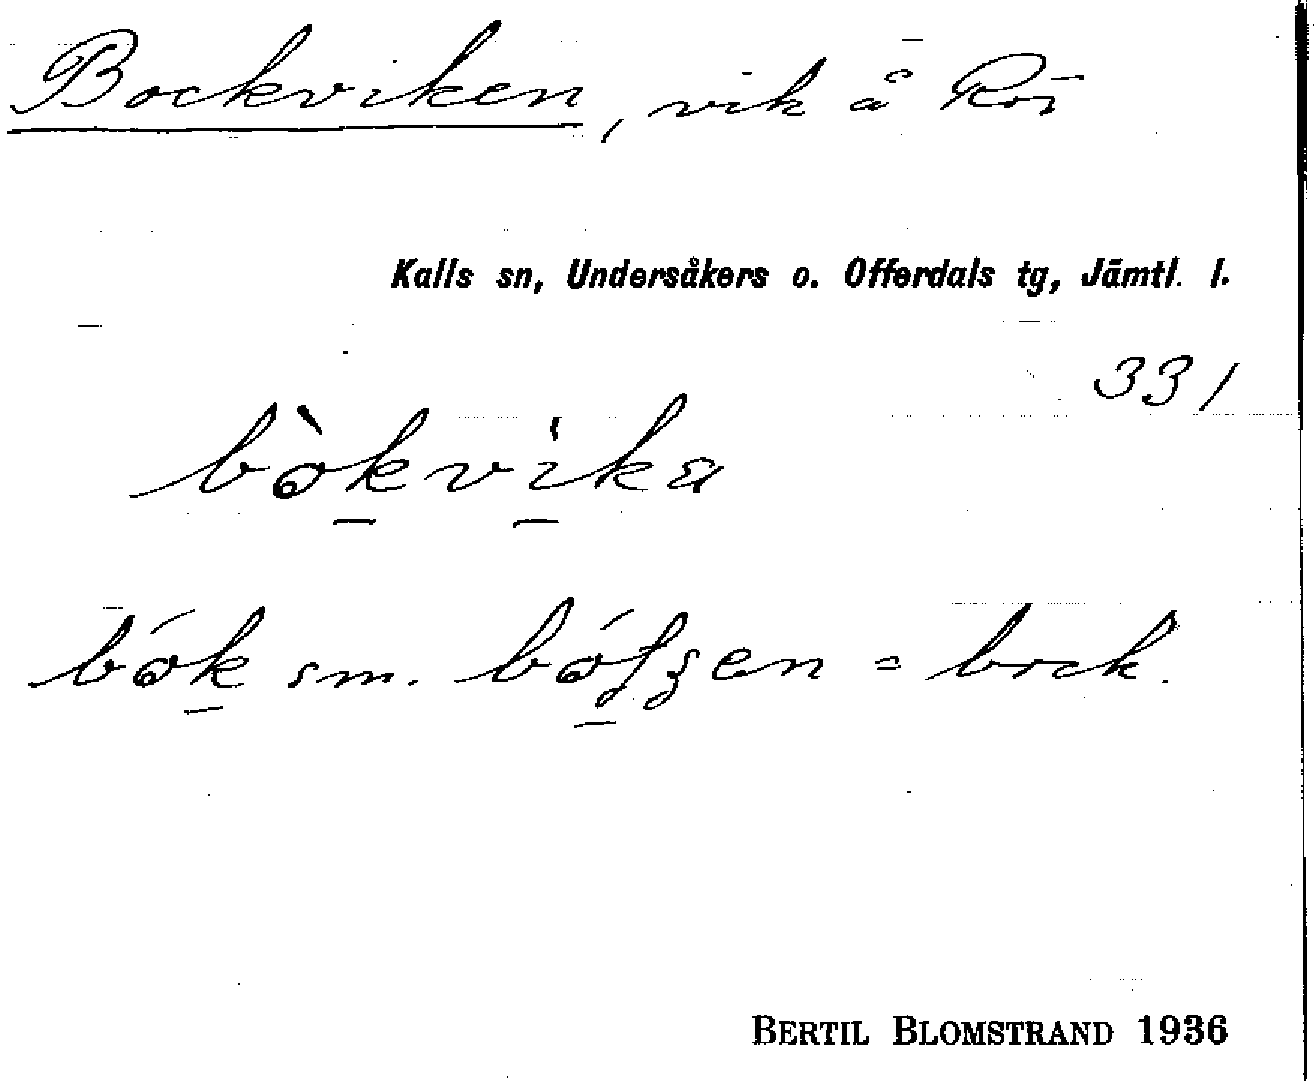 Bockviken, vik å Rör
Kalls sn, Undersåkers o. Offerdals tg, Jämtl. l.
331
bòkvìka
bók sm. bófzen = bock.
BERTIL BLOMSTRAND 1936